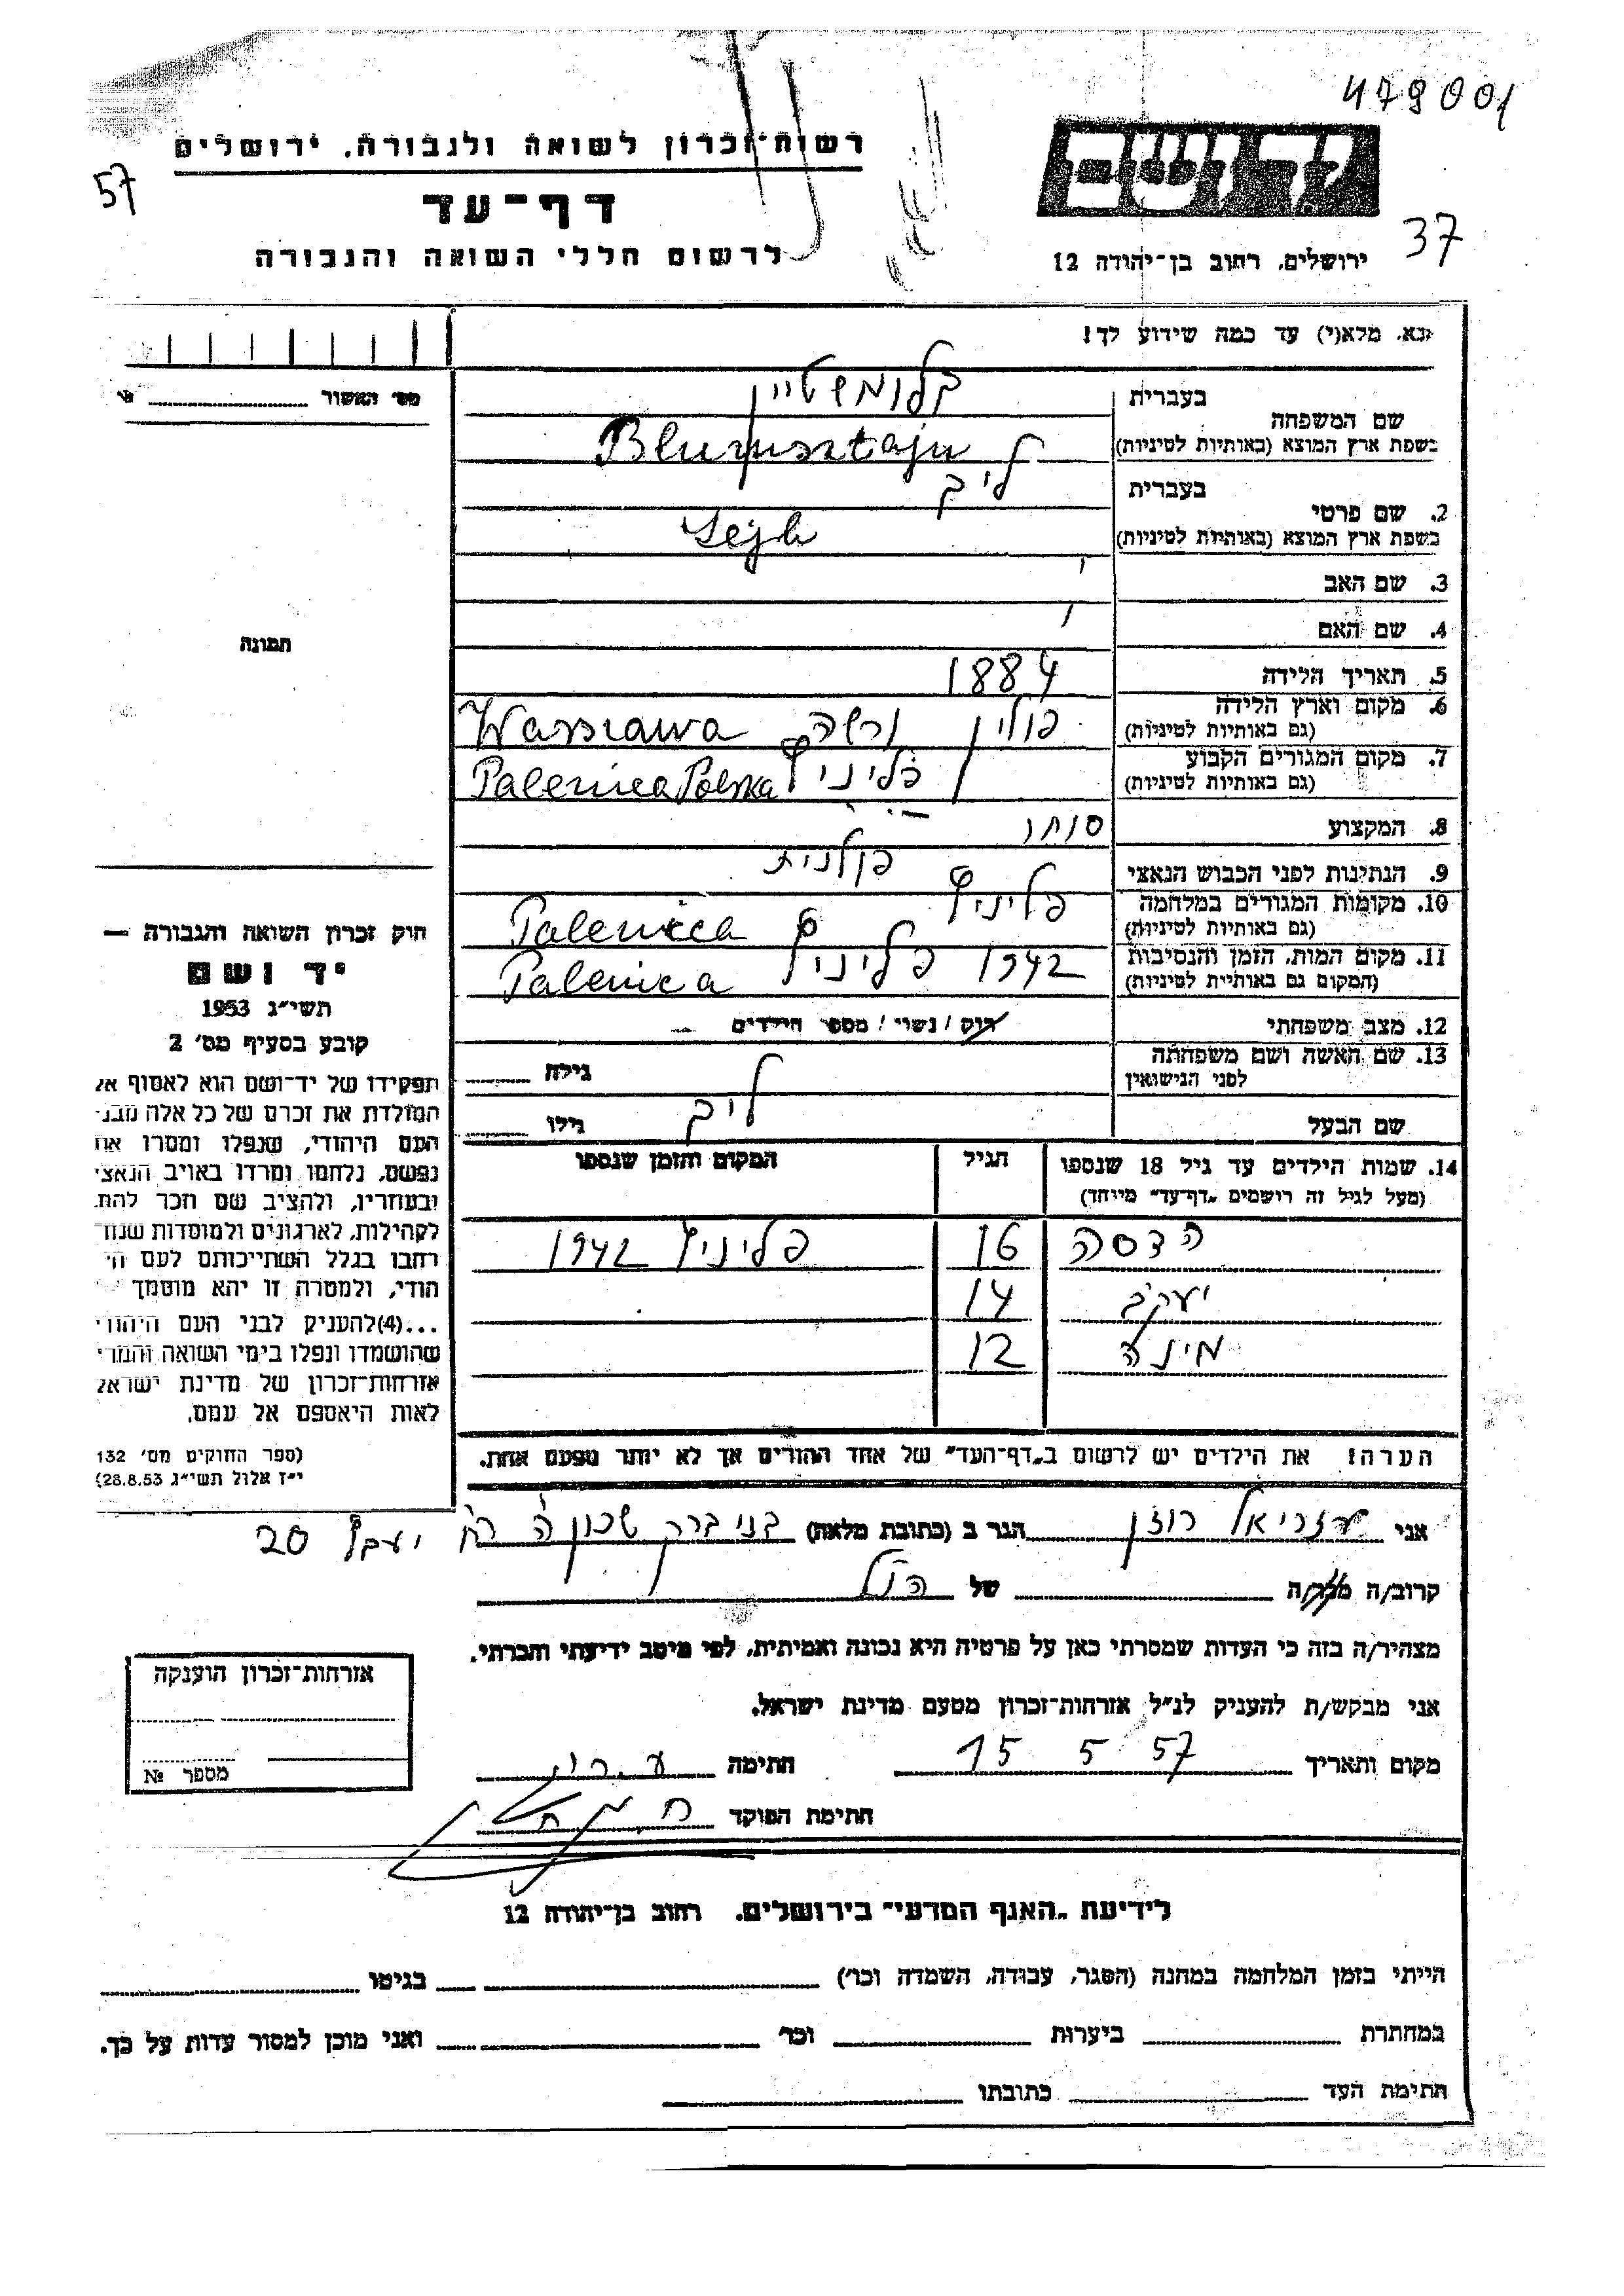 479001
רשות־זכרון לשואה ולגבורה, ירושלים
57
דף־עד
לרשום חללי השואה והגבורה
ירושלים, רחוב בן־יהודה 12
37
נא, מלא(י) עד כמה שידוע לך!
מס׳ האשור
בעברית בלומשטיין
שם המשפחה
בשפת ארץ המוצא (באותיות לטיניות) Blumsztajn
בעברית לייב
2. שם פרטי
בשפת ארץ המוצא (באותיות לטיניות) Lejb
3. שם האב
4. שם האם
תמונה
5. תאריך הלידה 1884
6. מקום וארץ הלידה פולין ורשה Warszawa
(גם באותיות לטיניות)
7. מקום המגורים הקבוע פליניץ Palenica Polska
(גם באותיות לטיניות)
8. המקצוע סוחר
9. הנתינות לפני הכבוש הנאצי פולנית
10. מקומות המגורים במלחמה פליניץ Palenica
(גם באותיות לטיניות)
11. מקום המות, הזמן והנסיבות 1942 פליניץ Palenica
(המקום גם באותיות לטיניות)
12. מצב משפחתי רוק / נשוי / מספר הילדים
13. שם האשה ושם משפחתה
לפני הנישואין גילה
שם הבעל לייב גילו
14. שמות הילדים עד גיל 18 שנספו הגיל המקום והזמן שנספו
(מעל לגיל זה רושמים „דף־עד” מיוחד)
הדסה 16 פליניץ 1942
יעקב 14
מינה 12
חוק זכרון השואה והגבורה —
יד ושם
תשי״ג 1953
קובע בסעיף מס׳ 2
תפקידו של יד־ושם הוא לאסוף אל
המולדת את זכרם של כל אלה מבני
העם היהודי, שנפלו ומסרו את
נפשם, נלחמו ומרדו באויב הנאצי
ובעוזריו, ולהציב שם וזכר להם,
לקהילות, לארגונים ולמוסדות שנח־
רבו בגלל השתייכותם לעם הי
הודי, ולמטרה זו יהא מוסמך
...(4)להעניק לבני העם היהודי
שהושמדו ונפלו בימי השואה והמרי
אזרחות־זכרון של מדינת ישראל
לאות היאספם אל עמם.
(ספר החוקים מס׳ 132
י״ז אלול תשי״ג 28.8.53)
הערה! את הילדים יש לרשום ב„דף־העד” של אחד ההורים אך לא יותר מפעם אחת.
אני עזריאל רוזן הגר ב (כתובת מלאה) בני ברק שכון ה רח יעבץ 20
קרוב/ה מכר/ה של הנ״ל
מצהיר/ה בזה כי העדות שמסרתי כאן על פרטיה היא נכונה ואמיתית, לפי מיטב ידיעתי והכרתי.
אני מבקש/ת להעניק לנ״ל אזרחות־זכרון מטעם מדינת ישראל.
מקום ותאריך 15 5 57 חתימה
חתימת הפוקד
אזרחות־זכרון הוענקה
מספר №
לידיעת „האגף המדעי” בירושלים, רחוב בן־יהודה 12
הייתי בזמן המלחמה במחנה (הסגר, עבודה, השמדה וכו׳) בגיטו
במחתרת ביערות וכו׳ ואני מוכן למסור עדות על כך.
חתימת העד כתובתו